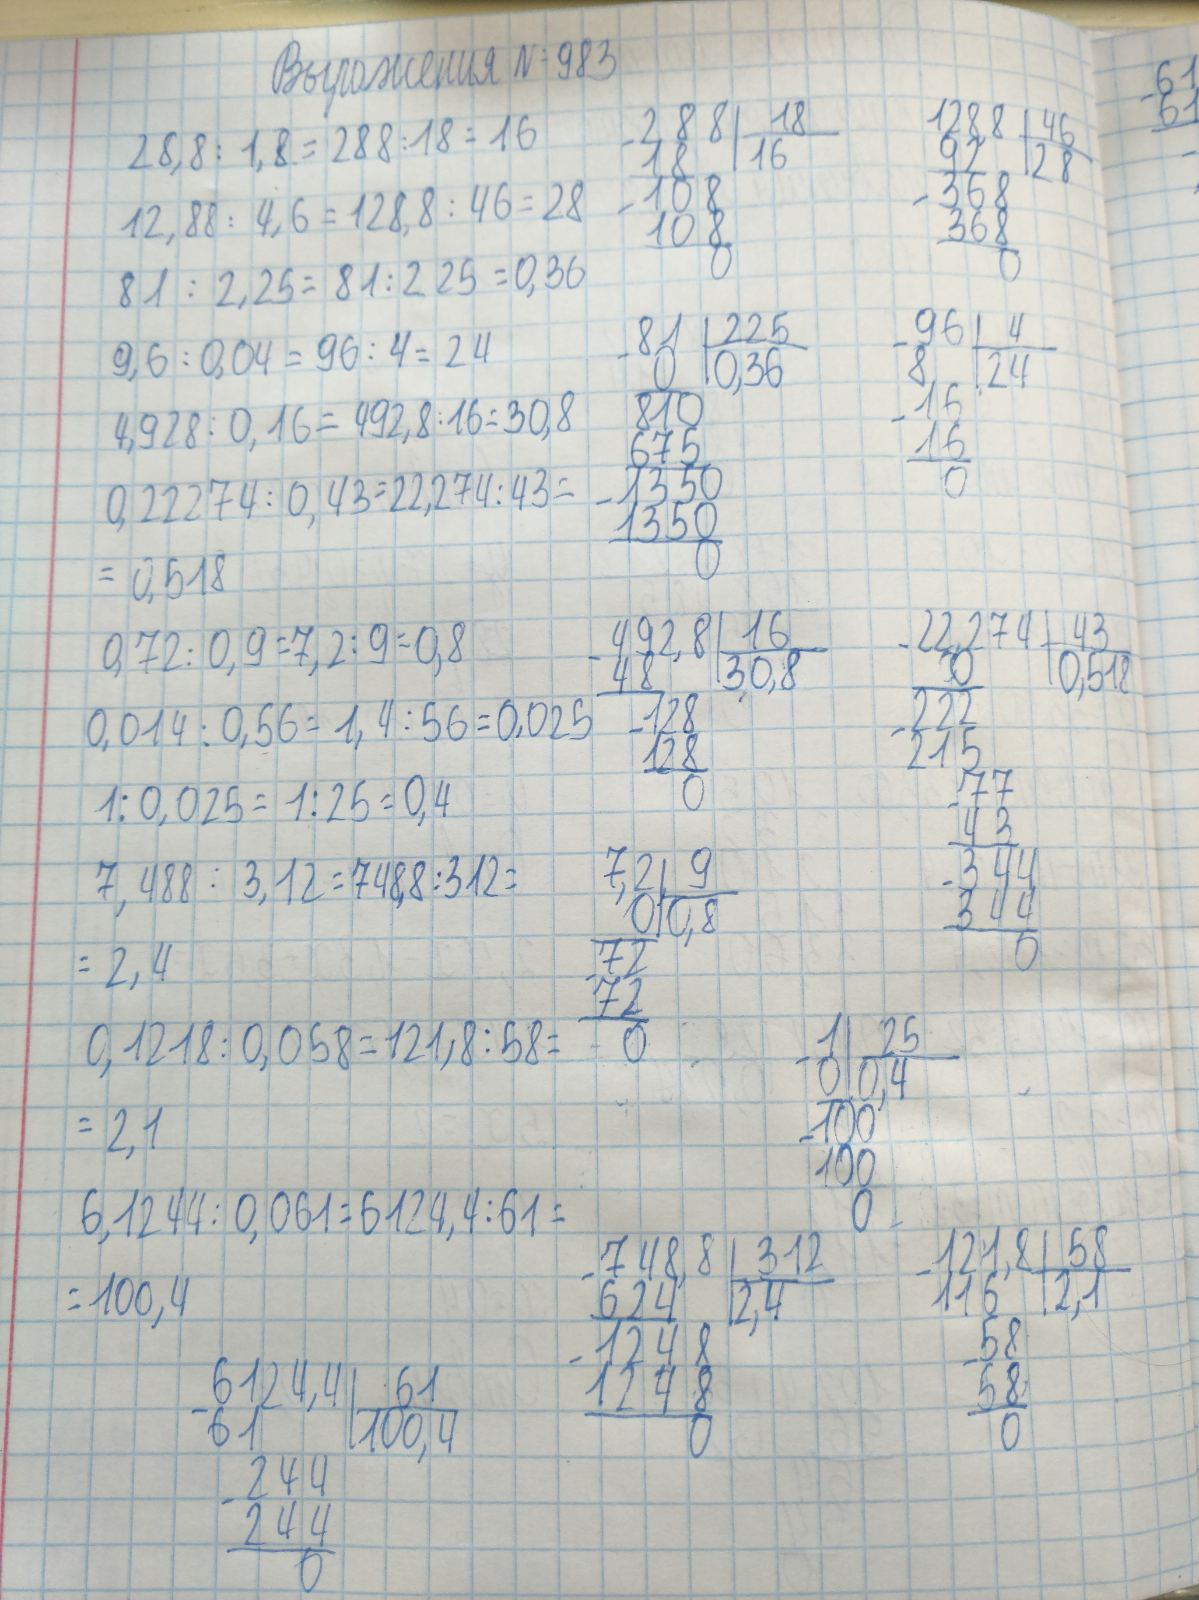 Выражения №983
28,8 : 1,8 = 288 : 18 = 16
12,88 : 4,6 = 128,8 : 46 = 28
81 : 2,25 = 81 : 225 = 0,36
9,6 : 0,04 = 96 : 4 = 24
4,928 : 0,16 = 492,8 : 16 = 30,8
0,22274 : 0,43 = 22,274 : 43 =
= 0,518
0,72 : 0,9 = 7,2 : 9 = 0,8
0,014 : 0,56 = 1,4 : 56 = 0,025
1 : 0,025 = 1 : 25 = 0,4
7,488 : 3,12 = 748,8 : 312 =
= 2,4
0,1218 : 0,058 = 121,8 : 58 =
= 2,1
6,1244 : 0,061 = 6124,4 : 61 =
= 100,4
-6124,4 | 61
61 | 100,4
-244
244
0
-288 | 18
18 | 16
-108
108
0
128,8 | 46
92 | 28
-368
368
0
-81 | 225
0 | 0,36
810
675
-1350
1350
0
-96 | 4
8 | 24
-16
16
0
-492,8 | 16
48 | 30,8
-128
128
0
-22,274 | 43
0 | 0,518
-222
215
-77
43
-344
344
0
7,2 | 9
0 | 0,8
72
72
0
-1 | 25
0 | 0,4
-100
100
0
-748,8 | 312
624 | 2,4
-1248
1248
0
-121,8 | 58
116 | 2,1
-58
58
0
-61
61